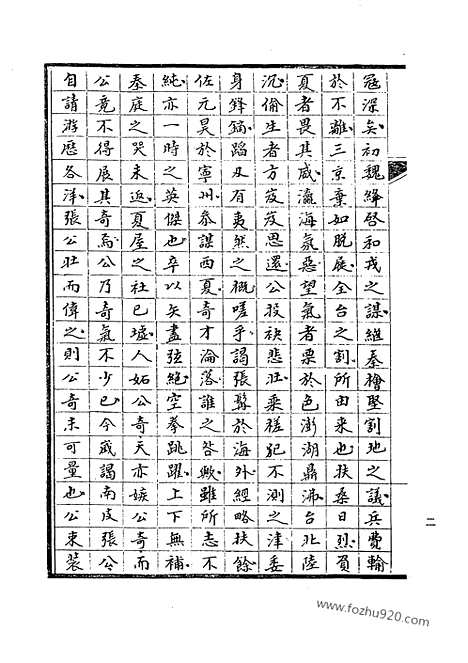 冦深矣初魏絳啓和戎之謀繼秦檜堅割地之議兵費輸
於不離三京棄如脫屣全台之割所由来也扶桑日烈負
夏者畏其威瀛海氣惡望氣者票於色澎湖鼎沸台北陸
沉偷生者方岌岌思還公投袂悲壯乘槎犯不測之津委
身鋒鏑蹈刄有夷然之概嗟乎謁張髯於海外經略扶餘
佐元昊於寧州叅謀西夏奇才淪落誰之咎歟雖所志不
純亦一時之英傑也卒以矢盡弦絕空拳跳躍上下無補
秦庭之哭未返夏屋之社已墟人妬公奇天亦嫉公奇而
公竟不得展其奇焉公乃奇氣不少已今歲謁南皮張公
自請游歷各洋張公壯而偉之則公奇未可量也公束裝
二
www.fozhu920.com